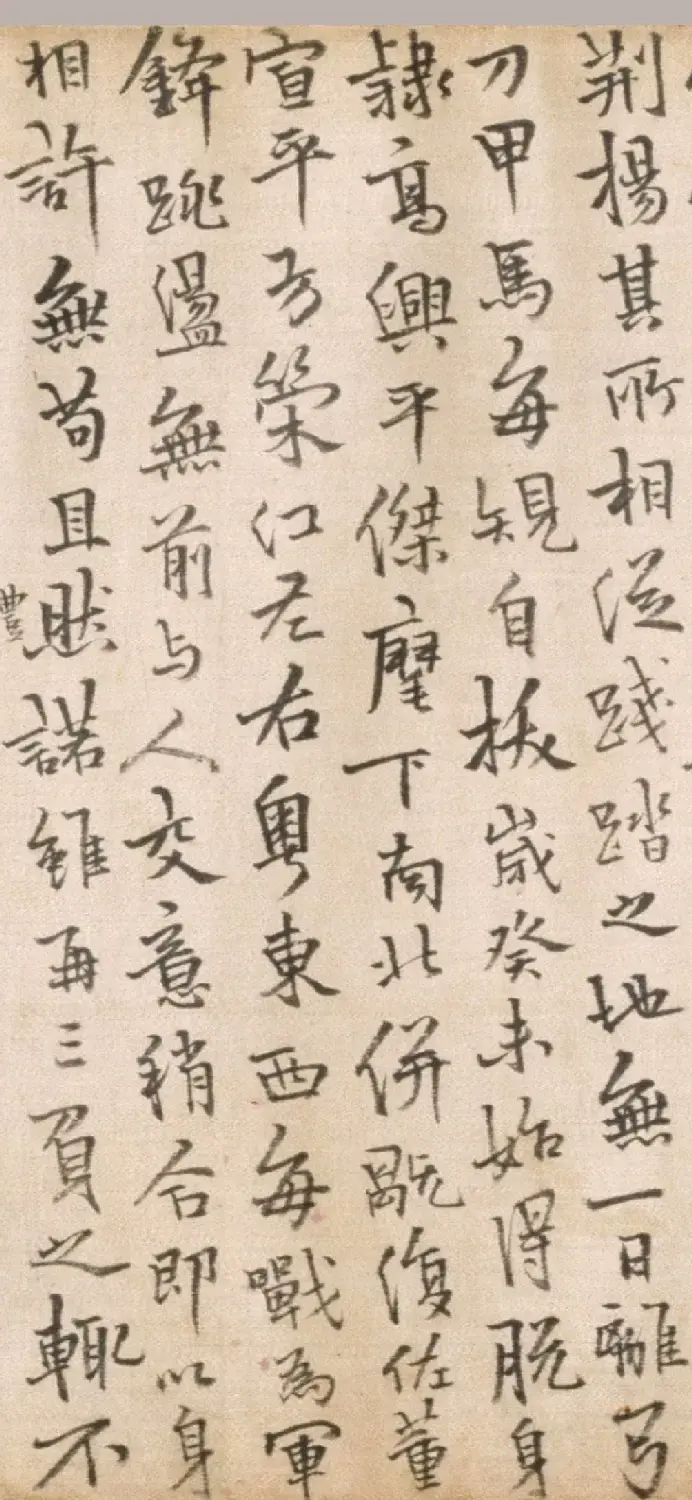 荆楊其所相從踐踏之地無一日離弓
刀甲馬每規自拔歲癸未始得脫身
隸高興平傑麾下南北併甌復佐董
宣平方榮江左右粤東西每戰為軍
鋒跳盪無前与人交意稍合即以身
相許無苟且然諾雖再三負之輒不
豐